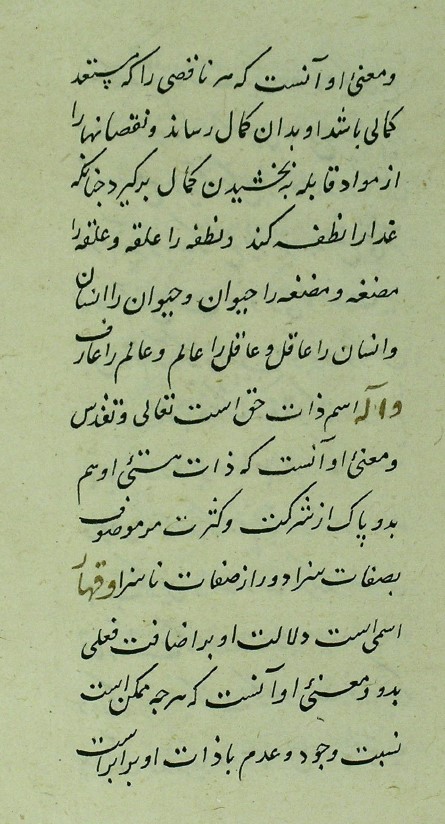 و معنئ او آنست که هر ناقصی را که مستعد
کمالی باشد او بدان کمال رساند و نقصانها را
از مواد قابله به بخشیدن کمال برگیرد چنانکه
غذا را نطفه کند و نطفه را علقه و علقه را
مضغه و مضغه را حیوان و حیوان را انسان
و انسان را عاقل و عاقل را عالم و عالم را عارف
و اله اسم ذات حق است تعالی و تقدس
و معنئ او آنست که ذات هستئ او هم
بدو پاک از شرکت و کثرت مر موصوف
بصفات سزا دور از صفات ناسزا و قهار
اسمی است دلالت او بر اضافت فعلی
بدو و معنئ او آنست که هرچه ممکن است
نسبت وجود و عدم با ذات او برابر است